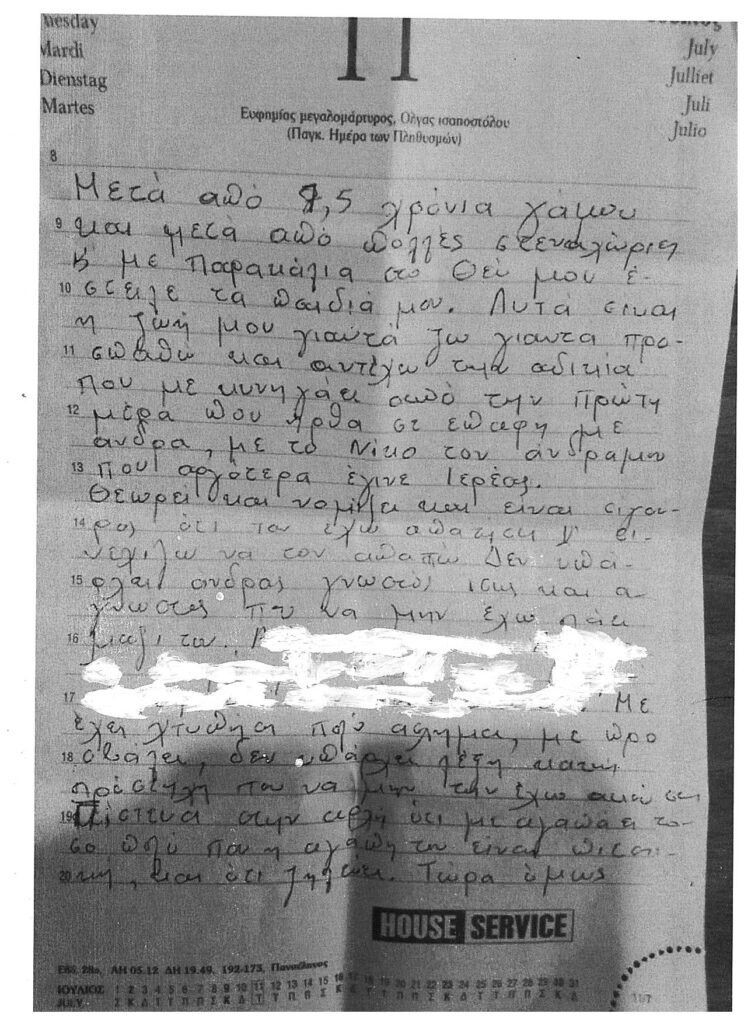 Tuesday
Mardi
Dienstag
Martes
11
July
Julliet
Juli
Julio
Ευφημίας μεγαλομάρτυρος, Ολγας ισαποστόλου
(Παγκ. Ημέρα των Πληθυσμών)
8
Μετά από 7,5 χρόνια γάμου
9 και μετά από πολλές στεναχώριες
κ με παρακάλια στο Θεό μου έ-
10 στειλε τα παιδιά μου. Αυτά ειναι
η ζωή μου γιαυτά ζω γιαυτα προ-
11 σπαθώ και αντέχω την αδικία
που με κυνηγάει από την πρώτη
12 μέρα που ήρθα σε επαφη με
άνδρα, με το Νίκο τον άνδραμου
13 που αργότερα έγινε Ιερέας.
Θεωρεί και νομίζει και είναι σιγου-
14 ρος ότι τον έχω απατησει κ
να τον απατώ Δεν υπά-
15 ρχει άνδρας γνωστός και α-
γνωστος που να μην έχω πάει
16 μαζί του.
17 Με
έχει χτυπήσει πολύ ασχημα, με προ
18 σβάλει, δεν υπάρχει λέξη κακη
που να μην την έχω ακούσει
19 Πίστευα στην αρχή ότι με αγαπάει το-
σο πολύ που η αγάπη του είναι
20 και ότι ζηλεύει. Τώρα όμως
HOUSE SERVICE
Εβδ. 28η, ΑΗ 05.12 ΔΗ 19.49, 192-173, Πανσέληνος
ΙΟΥΛΙΟΣ 1 2 3 4 5 6 7 8 9 10 11 12 13 14 15 16 17 18 19 20 21 22 23 24 25 26 27 28 29 30 31
JULY Σ Κ Δ Τ Τ Π Π Σ Κ Δ Τ Τ Π Π Σ Κ Δ Τ Τ Π Π Σ Κ Δ Τ Τ Π Π Σ Κ Δ
11/7